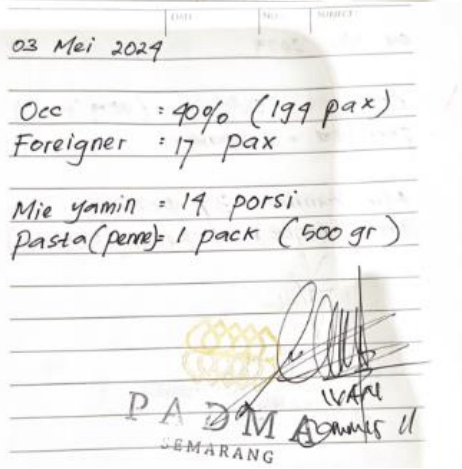 DATE: NO.: SUBJECT:
03 Mei 2024
Occ : 40% (194 pax)
Foreigner : 17 pax
Mie yamin = 14 porsi
Pasta (penne)= 1 pack (500 gr)
PADMA
SEMARANG